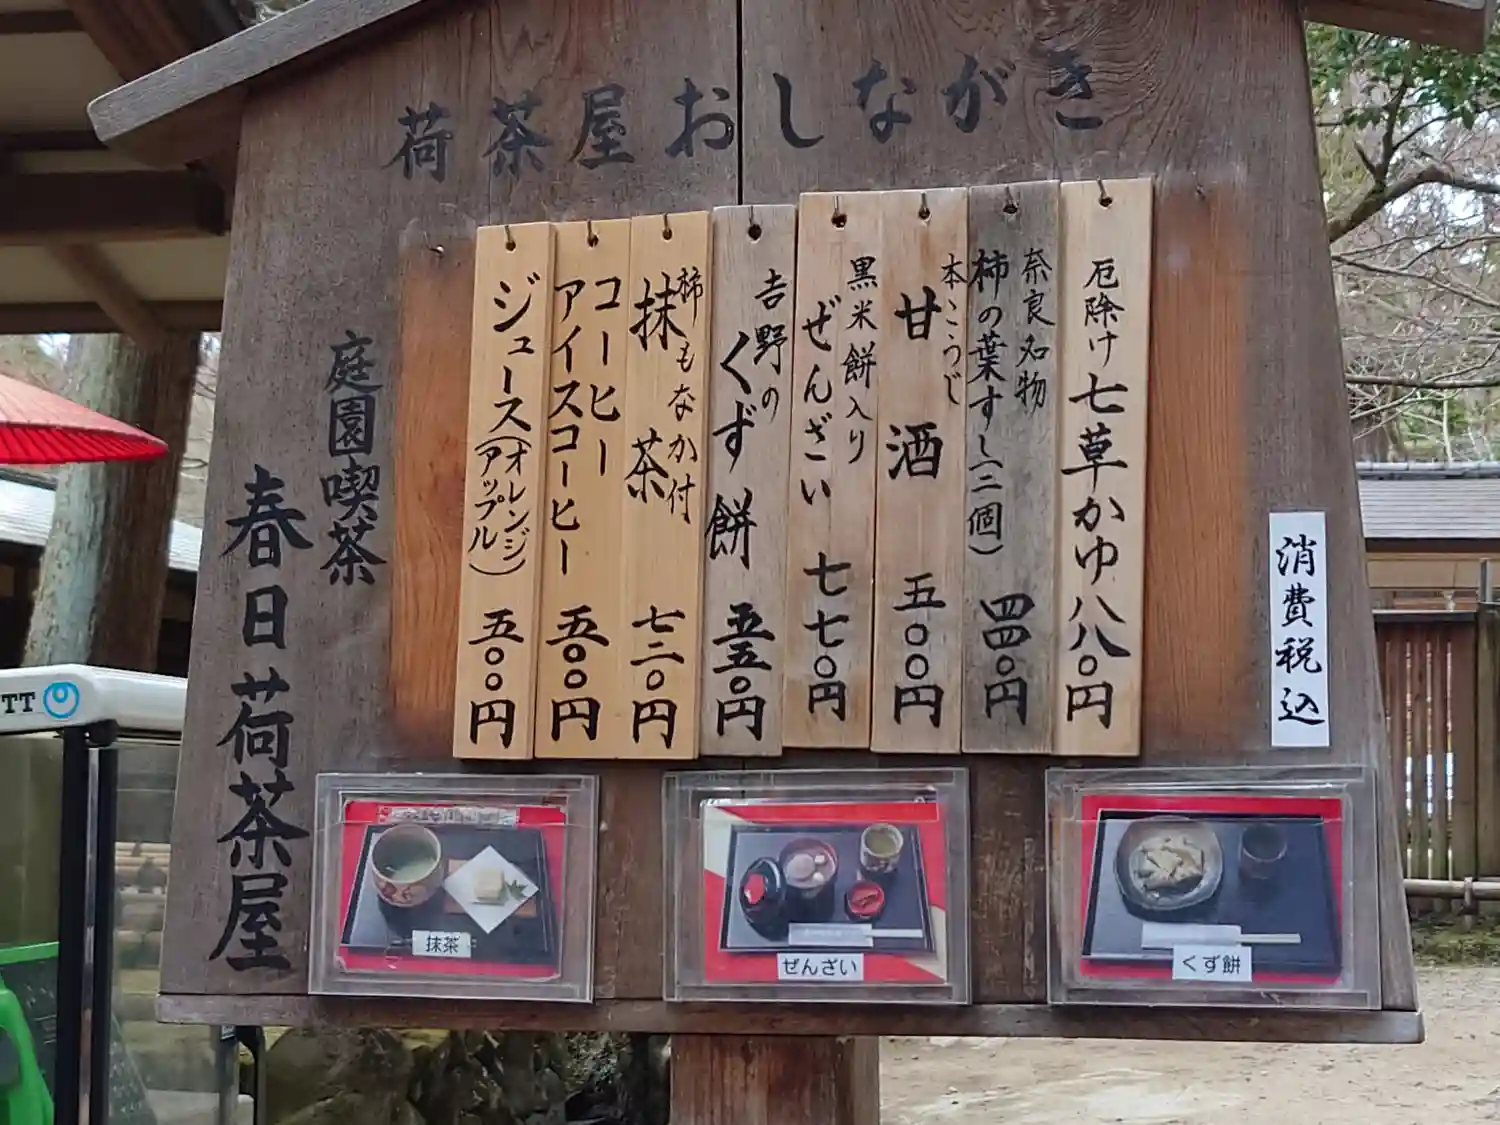 荷茶屋おしながき
厄除け七草かゆ八八〇円
奈良名物
柿の葉すし(二個)四四〇円
本こうじ
甘酒五〇〇円
黒米餅入り
ぜんざい七七〇円
吉野の
くず餅五五〇円
柿もなか付
抹茶七二〇円
コーヒー
アイスコーヒー五〇〇円
ジュース(オレンジ
アップル)五〇〇円
消費税込
庭園喫茶
春日荷茶屋
抹茶
ぜんざい
くず餅
TT